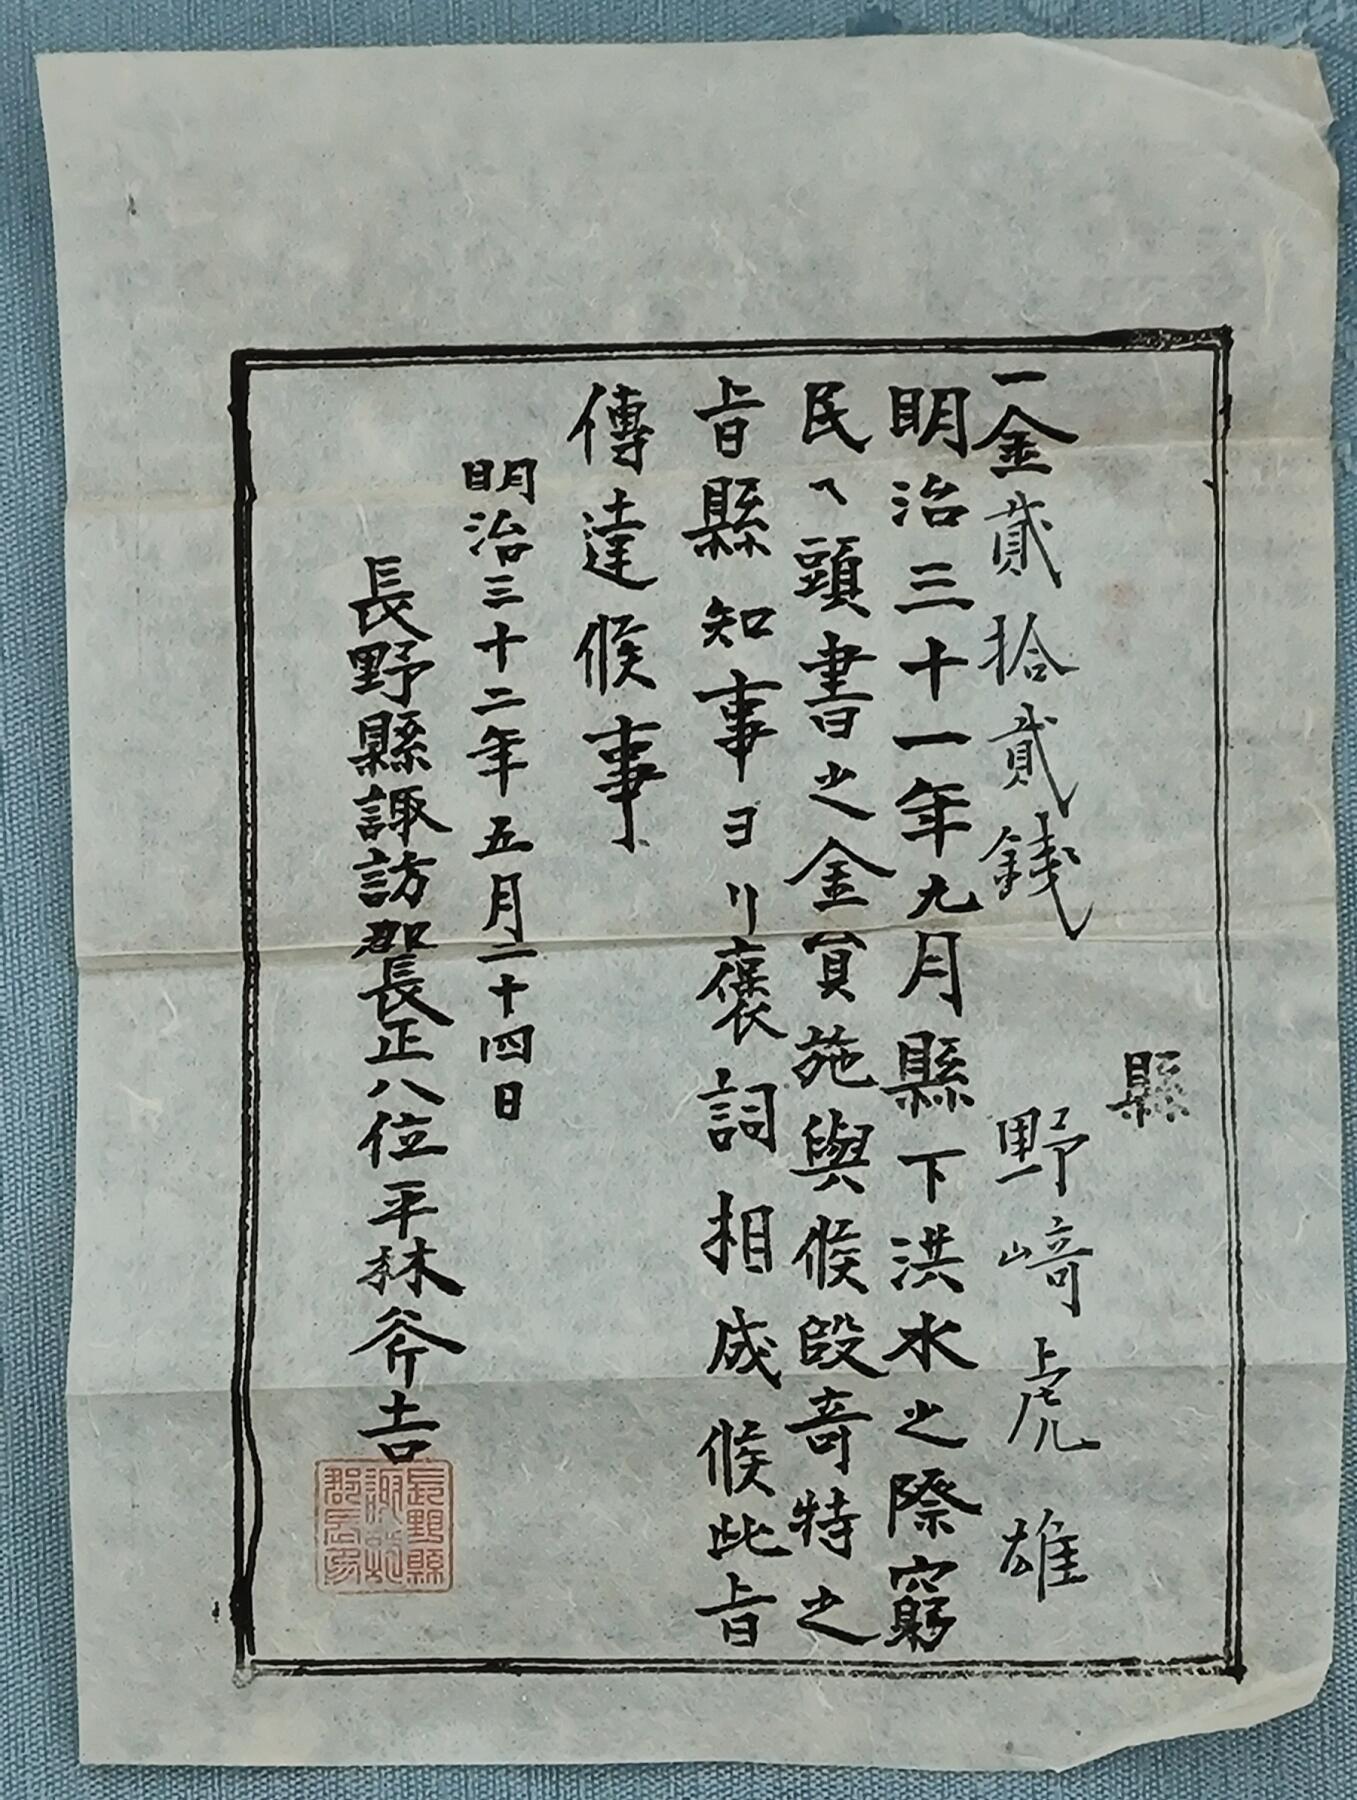 縣
一金貳拾貳錢
野﨑虎雄
明治三十一年九月縣下洪水之際窮
民ヘ頭書之金員施與候段竒特之
旨縣知事ヨリ褒詞相成候此旨
傳達候事
明治三十二年五月二十四日
長野縣諏訪郡長正八位平林斧吉
長野縣
諏訪
郡長印